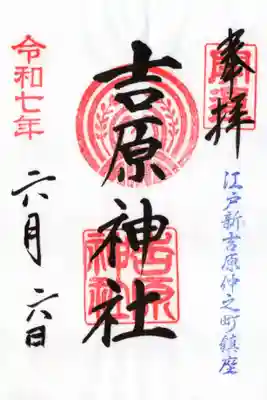 奉拝
開運
江戸新吉原仲之町鎮座
吉原神社
吉原
神社
令和七年
六月六日